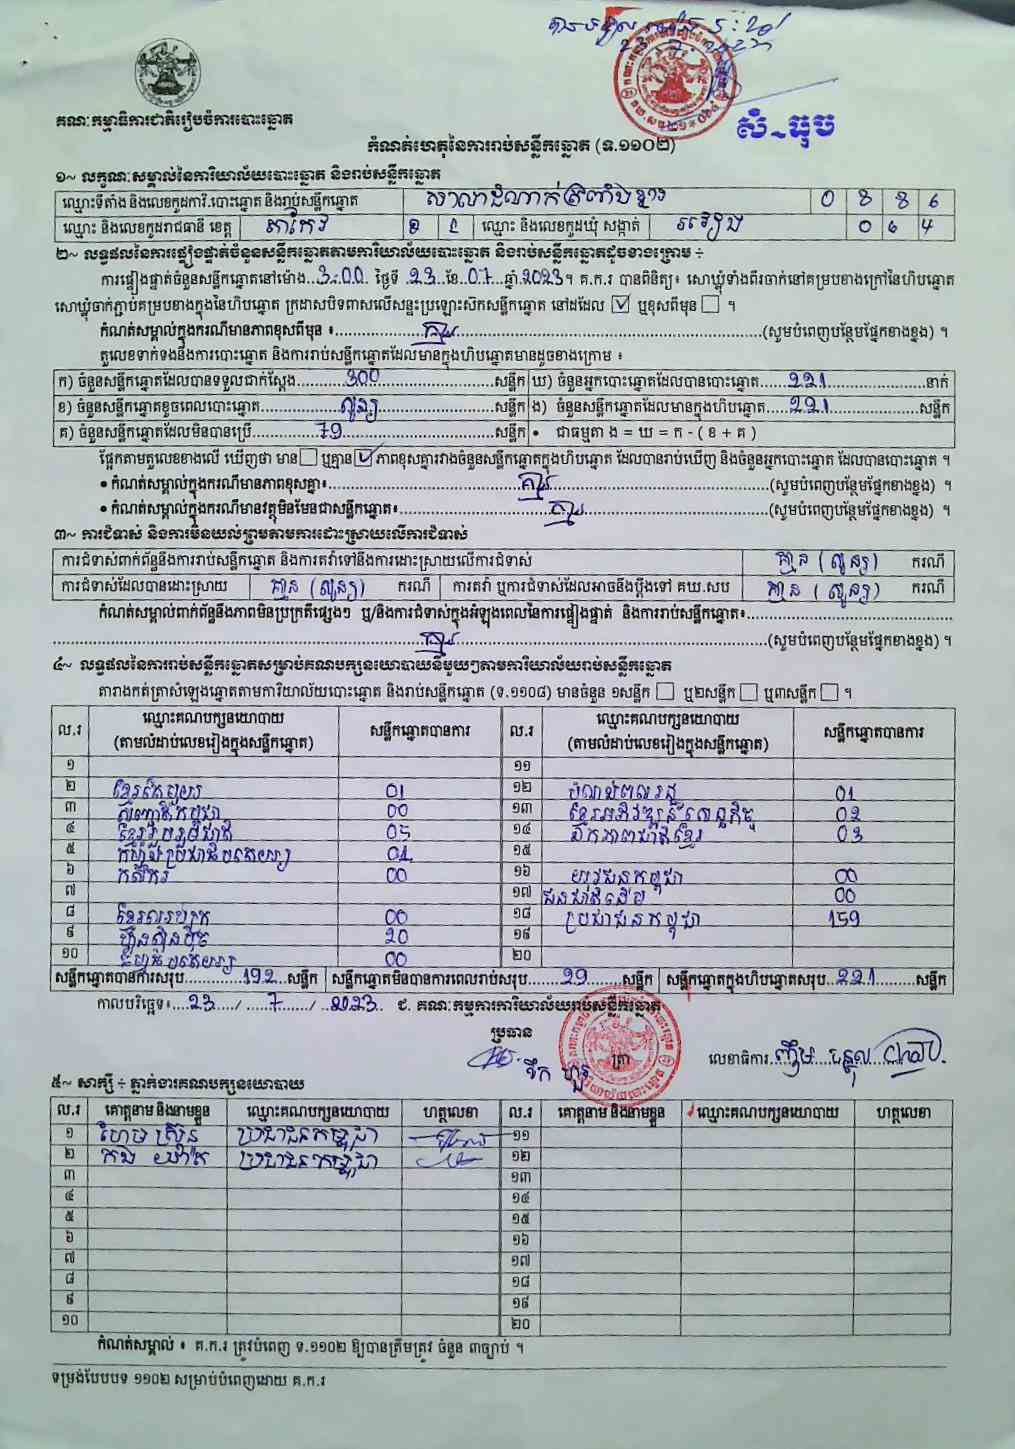 គណៈកម្មាធិការជាតិរៀបចំការបោះឆ្នោត
សំ-ធុប
កំណត់ហេតុនៃការរាប់សន្លឹកឆ្នោត (ទ.១១០២)
១~ លក្ខណៈសម្គាល់នៃការិយាល័យបោះឆ្នោត និងរាប់សន្លឹកឆ្នោត
ឈ្មោះទីតាំង និងលេខកូដការិ.បោះឆ្នោត និងរាប់សន្លឹកឆ្នោត សាលាដំណាក់ត្រពាំងខ្នារ 0 8 8 6
ឈ្មោះ និងលេខកូដរាជធានី ខេត្ត តាកែវ ២ ១ ឈ្មោះ និងលេខកូដឃុំ សង្កាត់ 0 6 4
២~ លទ្ធផលនៃការផ្ទៀងផ្ទាត់ចំនួនសន្លឹកឆ្នោតតាមការិយាល័យបោះឆ្នោត និងរាប់សន្លឹកឆ្នោតដូចខាងក្រោម ÷
ការផ្ទៀងផ្ទាត់ចំនួនសន្លឹកឆ្នោតនៅម៉ោង 3:00 ថ្ងៃទី 23 ខែ 07 ឆ្នាំ 2023។ គ.ក.រ បានពិនិត្យ៖ សោឃ្លុំទាំងពីរចាក់នៅគម្របខាងក្រៅនៃហិបឆ្នោត
សោឃ្លុំចាក់ភ្ជាប់គម្របខាងក្នុងនៃហិបឆ្នោត ក្រដាសបិទពាសលើសន្ទះប្រឡោះសិកសន្លឹកឆ្នោត នៅដដែល ☑ ឬខុសពីមុន ☐ ។
កំណត់សម្គាល់ក្នុងករណីមានភាពខុសពីមុន ៖ គ្មាន (សូមបំពេញបន្ថែមផ្នែកខាងខ្នង) ។
តួលេខទាក់ទងនឹងការបោះឆ្នោត និងការរាប់សន្លឹកឆ្នោតដែលមានក្នុងហិបឆ្នោតមានដូចខាងក្រោម ៖
ក) ចំនួនសន្លឹកឆ្នោតដែលបានទទួលជាក់ស្តែង 300 សន្លឹក ឃ) ចំនួនអ្នកបោះឆ្នោតដែលបានបោះឆ្នោត 221 នាក់
ខ) ចំនួនសន្លឹកឆ្នោតខូចពេលបោះឆ្នោត សូន្យ សន្លឹក ង) ចំនួនសន្លឹកឆ្នោតដែលមានក្នុងហិបឆ្នោត 221 សន្លឹក
គ) ចំនួនសន្លឹកឆ្នោតដែលមិនបានប្រើ 79 សន្លឹក • ជាធម្មតា ង = ឃ = ក - ( ខ + គ )
ផ្អែកតាមតួលេខខាងលើ ឃើញថា មាន ☐ ឬគ្មាន ☑ ភាពខុសគ្នារវាងចំនួនសន្លឹកឆ្នោតក្នុងហិបឆ្នោត ដែលបានរាប់ឃើញ និងចំនួនអ្នកបោះឆ្នោត ដែលបានបោះឆ្នោត ។
• កំណត់សម្គាល់ក្នុងករណីមានភាពខុសគ្នា៖ គ្មាន (សូមបំពេញបន្ថែមផ្នែកខាងខ្នង) ។
• កំណត់សម្គាល់ក្នុងករណីមានវត្ថុមិនមែនជាសន្លឹកឆ្នោត៖ គ្មាន (សូមបំពេញបន្ថែមផ្នែកខាងខ្នង) ។
៣~ ការជំទាស់ និងការមិនយល់ព្រមតាមការដោះស្រាយលើការជំទាស់
ការជំទាស់ពាក់ព័ន្ធនឹងការរាប់សន្លឹកឆ្នោត និងការតវ៉ាទៅនឹងការដោះស្រាយលើការជំទាស់ គ្មាន (សូន្យ) ករណី
ការជំទាស់ដែលបានដោះស្រាយ គ្មាន (សូន្យ) ករណី ការតវ៉ា ឬការជំទាស់ដែលអាចនឹងប្តឹងទៅ គឃ.សប គ្មាន (សូន្យ) ករណី
កំណត់សម្គាល់ពាក់ព័ន្ធនឹងភាពមិនប្រក្រតីផ្សេងៗ ឬ/និងការជំទាស់ក្នុងអំឡុងពេលនៃការផ្ទៀងផ្ទាត់ និងការរាប់សន្លឹកឆ្នោត៖
គ្មាន (សូមបំពេញបន្ថែមផ្នែកខាងខ្នង) ។
៤~ លទ្ធផលនៃការរាប់សន្លឹកឆ្នោតសម្រាប់គណបក្សនយោបាយនីមួយៗតាមការិយាល័យរាប់សន្លឹកឆ្នោត
តារាងកត់ត្រាសំឡេងឆ្នោតតាមការិយាល័យបោះឆ្នោត និងរាប់សន្លឹកឆ្នោត (ទ.១១០៨) មានចំនួន ១សន្លឹក ☐ ឬ២សន្លឹក ☐ ឬ៣សន្លឹក ☐ ។
ល.រ ឈ្មោះគណបក្សនយោបាយ (តាមលំដាប់លេខរៀងក្នុងសន្លឹកឆ្នោត) សន្លឹកឆ្នោតបានការ ល.រ ឈ្មោះគណបក្សនយោបាយ (តាមលំដាប់លេខរៀងក្នុងសន្លឹកឆ្នោត) សន្លឹកឆ្នោតបានការ
១ ១១
២ ខ្មែរតែមួយ 01 ១២ 01
៣ សញ្ជាតិកម្ពុជា 00 ១៣ ខ្មែរអភិវឌ្ឍន៍សេដ្ឋកិច្ច 02
៤ ខ្មែររួបរួមជាតិ 05 ១៤ ឯកភាពជាតិខ្មែរ 03
៥ កម្លាំងប្រជាធិបតេយ្យ 01 ១៥
៦ កសិករ 00 ១៦ យុវជនកម្ពុជា 00
៧ ១៧ ជនជាតិដើម 00
៨ 00 ១៨ ប្រជាជនកម្ពុជា 159
៩ ហ៊្វុនស៊ិនប៉ិច 20 ១៩
១០ 00 ២០
សន្លឹកឆ្នោតបានការសរុប 192 សន្លឹក សន្លឹកឆ្នោតមិនបានការពេលរាប់សរុប 29 សន្លឹក សន្លឹកឆ្នោតក្នុងហិបឆ្នោតសរុប 221 សន្លឹក
កាលបរិច្ឆេទ៖ 23 / 7 / 2023 ជ. គណៈកម្មការការិយាល័យរាប់សន្លឹកឆ្នោត
ប្រធាន
ត្រា លេខាធិការ
៥~ សាក្សី ÷ ភ្នាក់ងារគណបក្សនយោបាយ
ល.រ គោត្តនាម និងនាមខ្លួន ឈ្មោះគណបក្សនយោបាយ ហត្ថលេខា ល.រ គោត្តនាម និងនាមខ្លួន ឈ្មោះគណបក្សនយោបាយ ហត្ថលេខា
១ ហែម ស្រ៊ុន ប្រជាជនកម្ពុជា ១១
២ ប្រជាជនកម្ពុជា ១២
៣ ១៣
៤ ១៤
៥ ១៥
៦ ១៦
៧ ១៧
៨ ១៨
៩ ១៩
១០ ២០
កំណត់សម្គាល់ ៖ គ.ក.រ ត្រូវបំពេញ ទ.១១០២ ឱ្យបានត្រឹមត្រូវ ចំនួន ៣ច្បាប់ ។
ទម្រង់បែបបទ ១១០២ សម្រាប់បំពេញដោយ គ.ក.រ